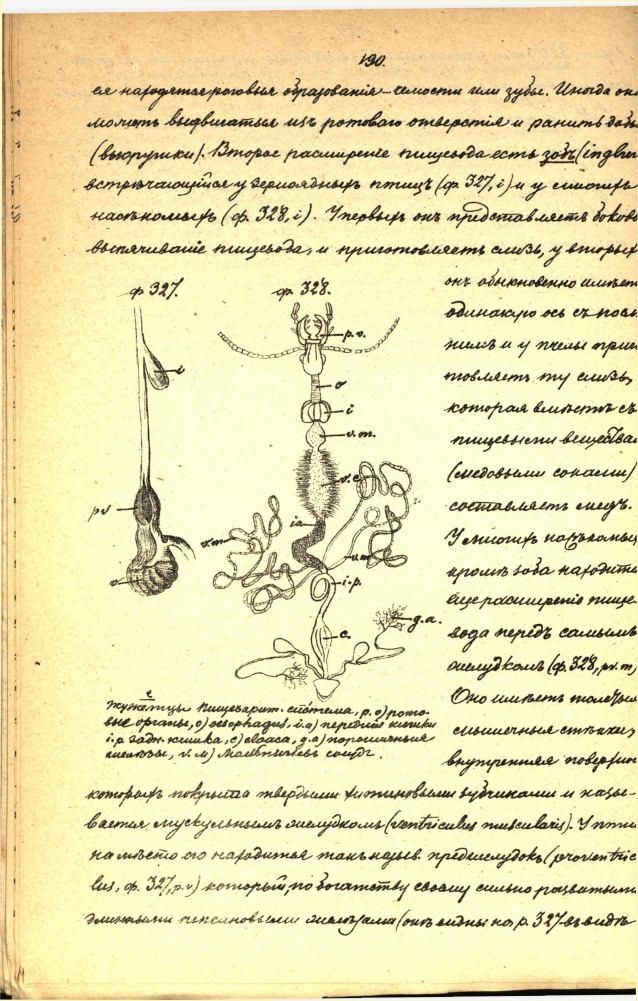 190.
ея находятся роговыя образованія – челюсти или зубы. Иногда он
можетъ выдвигаться изъ ротоваго отверстія и ранить добы
(вьюрушки). Второе расширеніе пищевода есть зобъ (ingluv
встрѣчающійся у зерноядныхъ птицъ (ф. 327, i) и у многихъ
насѣкомыхъ (ф. 328, i). У первыхъ онъ представляетъ боково
выпячиваніе пищевода, и приготовляетъ слизь, у вторых
ф 327.
ф. 328.
онъ обыкновенно имѣет
одинакую ось съ
нимъ и у пчелы приго
товляетъ ту слизь,
которая вмѣстѣ съ
пищевыми вещества
(медовыми соками)
составляетъ медъ.
У многихъ насѣкомых
кромѣ зоба находится
еще расширеніе пище-
вода передъ самымъ
желудкомъ (ф. 328, pv. m)
Оно имѣетъ толстыя
мышечныя стѣнки,
внутренняя поверхнос
i
pv
v
p.o.
o
i
v.m.
v.c.
ia
v.m
v.m
i.p.
c.
g.a.
Жужелицы пищеварит. система, p. o) рото-
вые органы, o) oesophagus, i.a) передняя кишка
i.p задн. кишка, c) cloaca, g.a) порошичныя
железы, v. м) Мальпигіевъ сосудъ.
которыхъ покрыта твердыми хитиновыми зубчиками и назы-
вается мускульнымъ желудкомъ (ventriculus muscularis). У птиц
на мѣсто его находится такъ назыв. преджелудокъ (proventric
lus, ф. 327, p.v) который, по богатству своему сильно развитыми
длинными пепсиновыми железами (онѣ видны на р. 327 въ видѣ